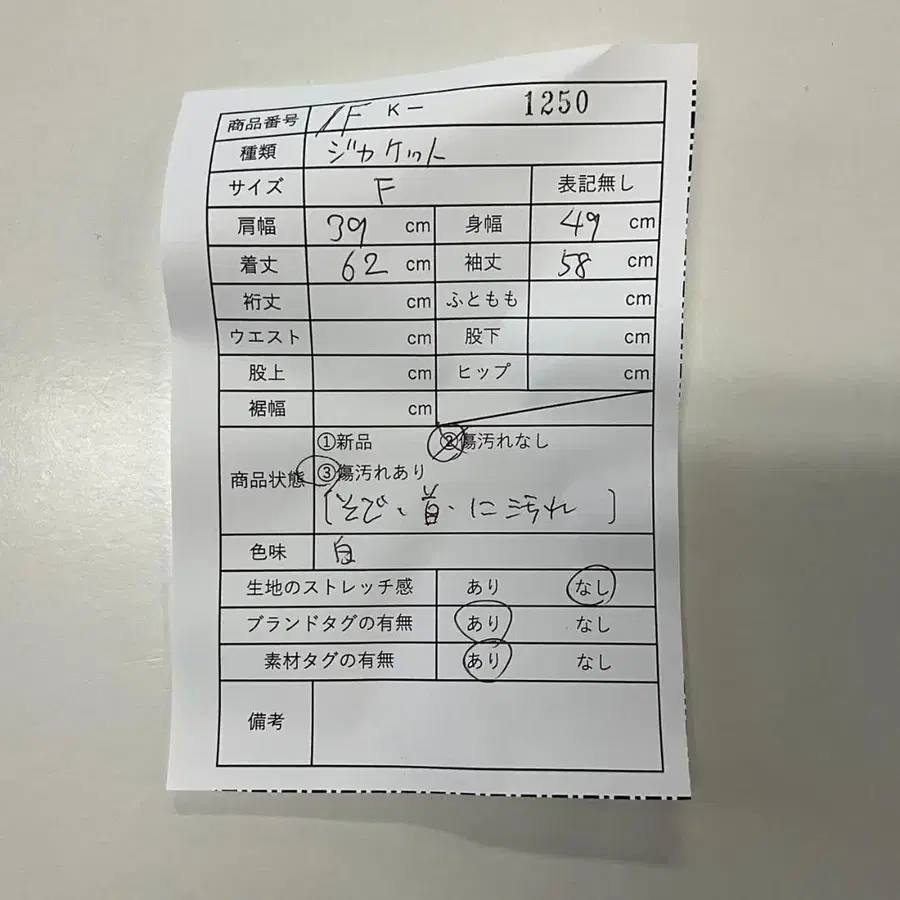 商品番号 F K— 1250
種類 ジャケット
サイズ F 表記無し
肩幅 39 cm 身幅 49 cm
着丈 62 cm 袖丈 58 cm
裄丈 cm ふともも cm
ウエスト cm 股下 cm
股上 cm ヒップ cm
裾幅 cm
商品状態 ①新品 ②傷汚れなし
③傷汚れあり
[そで、首に汚れ]
色味 白
生地のストレッチ感 あり なし
ブランドタグの有無 あり なし
素材タグの有無 あり なし
備考